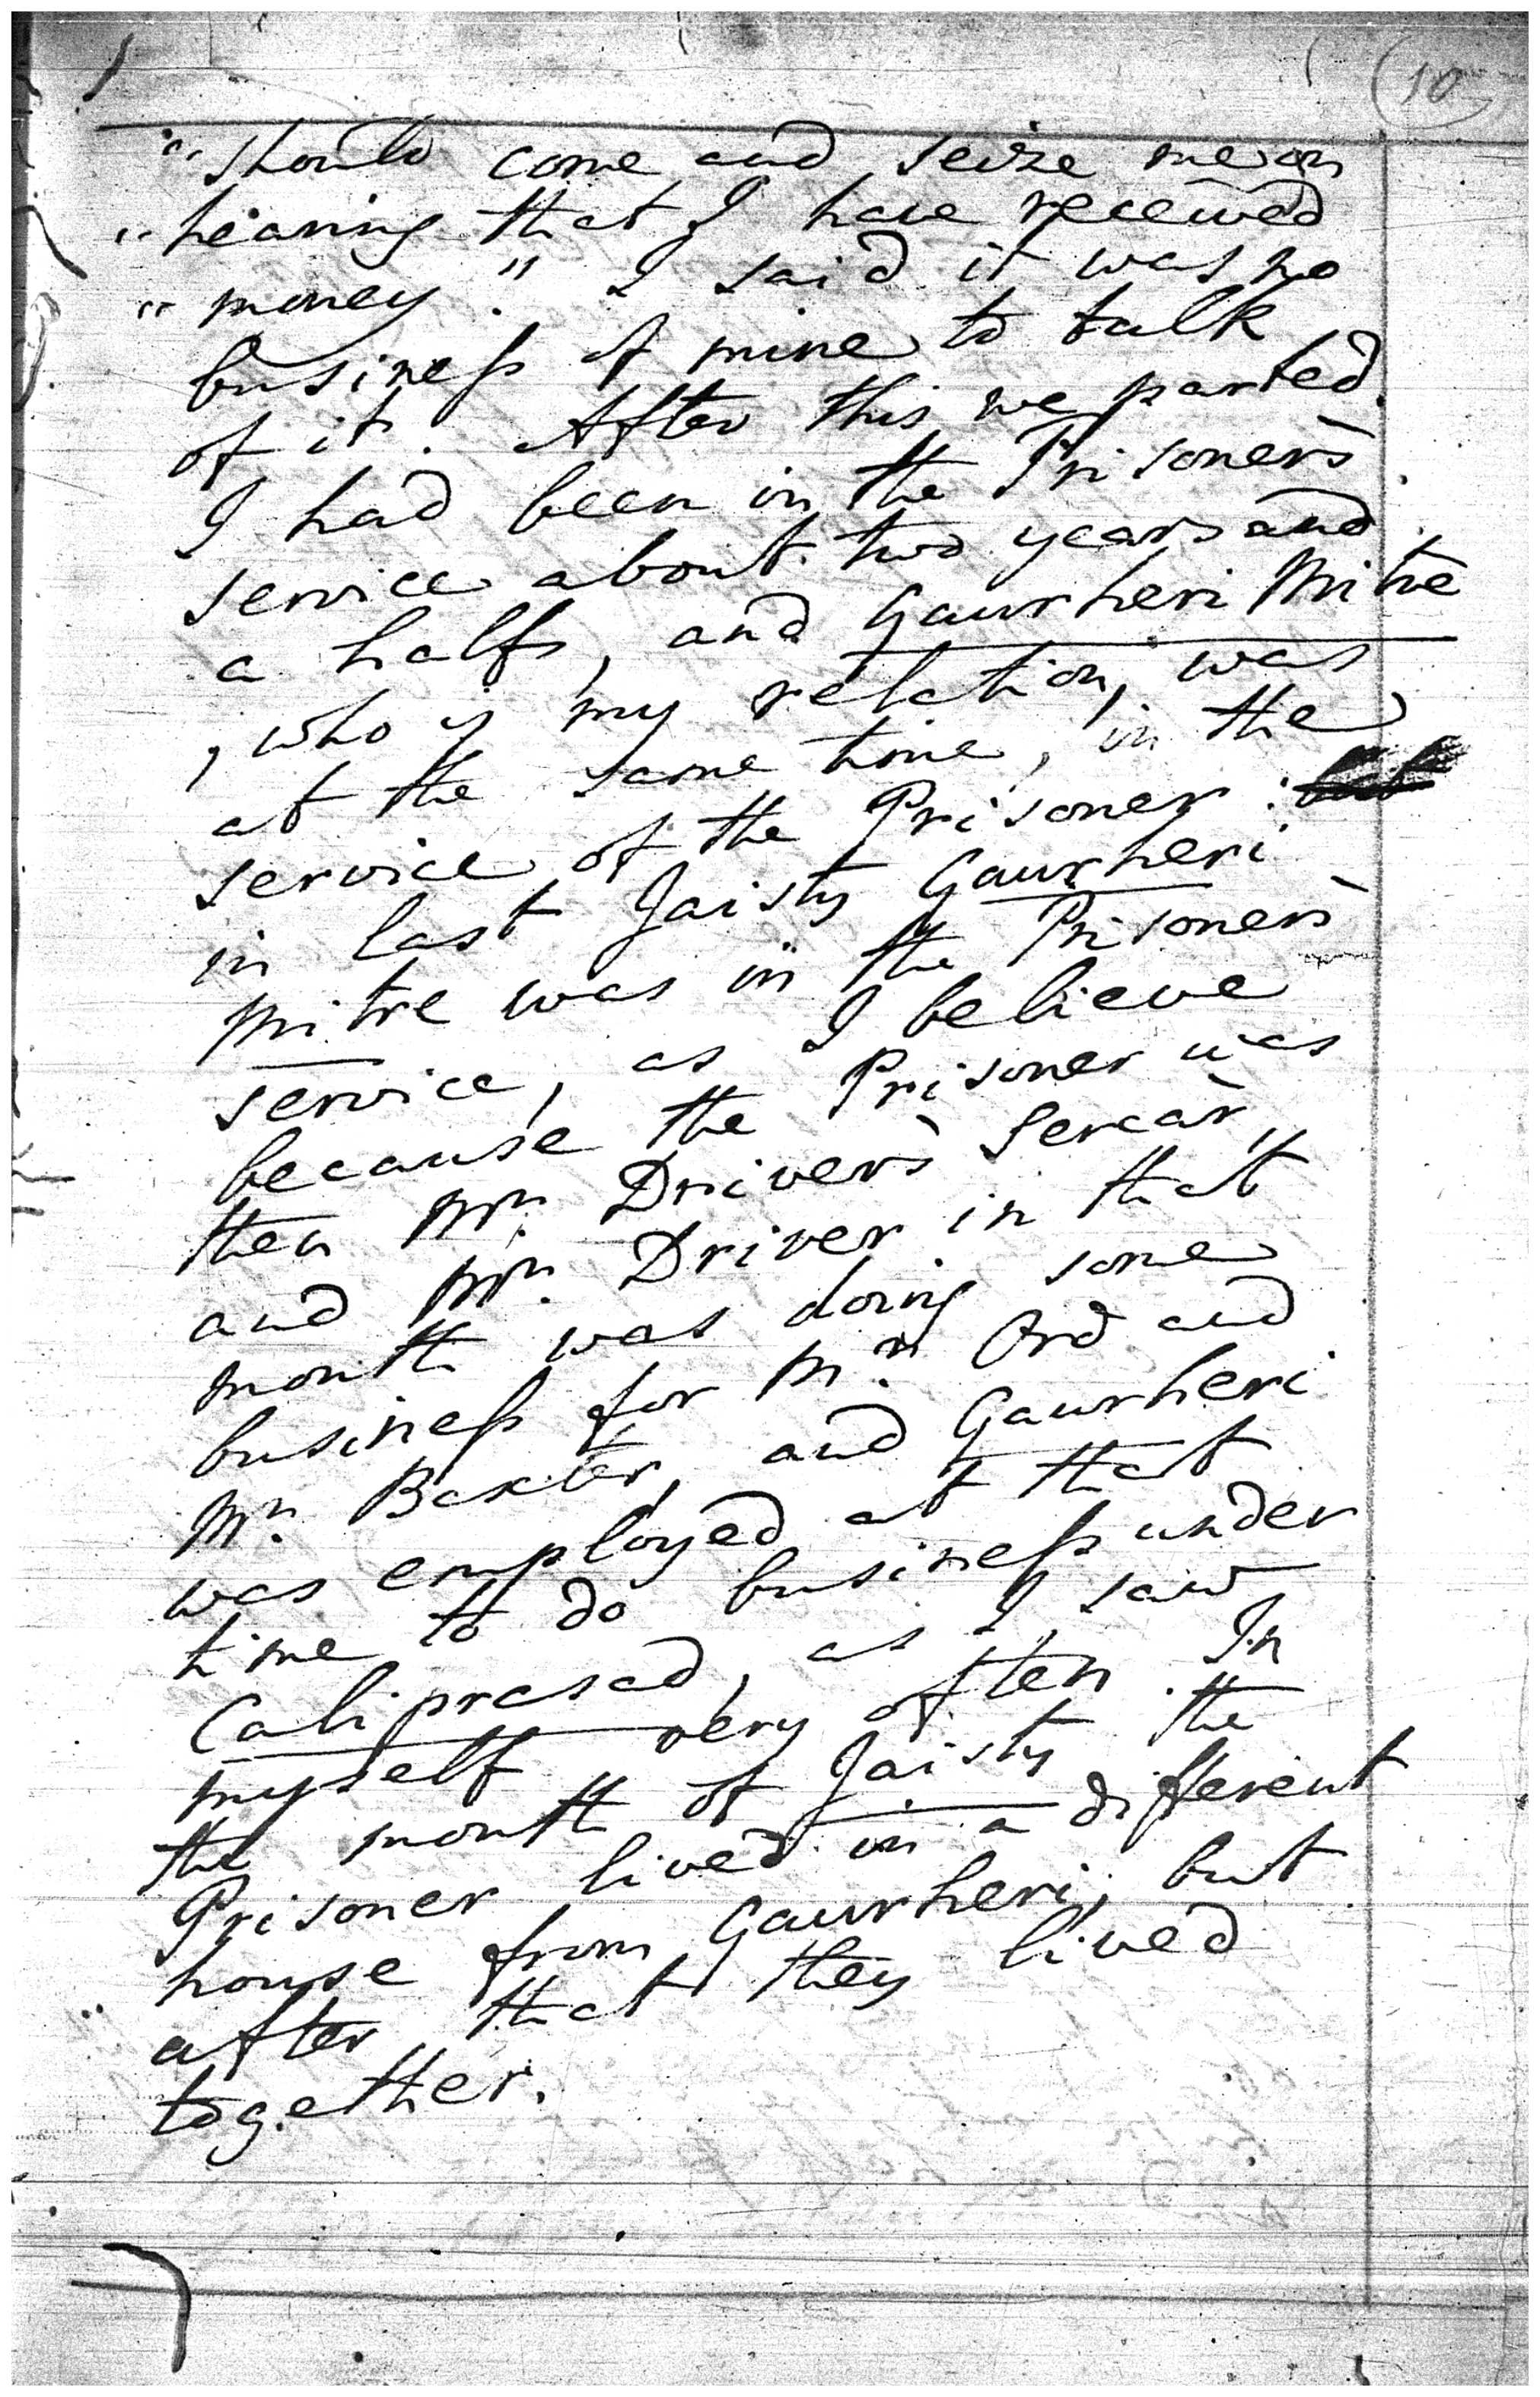 10
"should come and seize me on
"hearing that I have received
"money." I said it was no
business of mine to talk
of it. After this we parted.
I had been in the Prisoner's
service about two years and
a half, and Gaurheri Mitre
, who is my relation, was
at the same time, in the
service of the Prisoner:
in last Jaisty Gaurheri
Mitre was in the Prisoner's
service, as I believe
because the Prisoner was
then Mr. Driver's Sercar,
and Mr. Driver in that
month was doing some
business for Mr. Ord and
Mr. Baxter, and Gaurheri
was employed at that
time to do business under
Caliprasad, as I saw
myself very often. In
the month of Jaisty the
Prisoner lived in a different
house from Gaurheri; but
after that they lived
together.